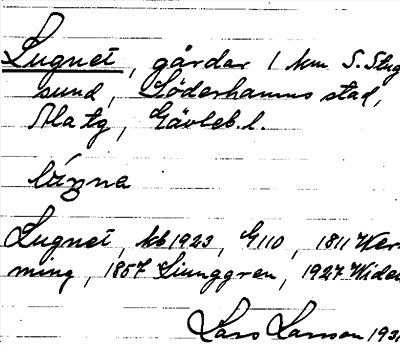 Lugnet, gårdar 1 km S. Stug
sund, Söderhamns stad,
Ala tg, Gävleb. l.
Lugnet, kb 1923, G110, 1811 Wer
ming, 1857 Ljunggren, 1927 Widen
Lars Larsson 193